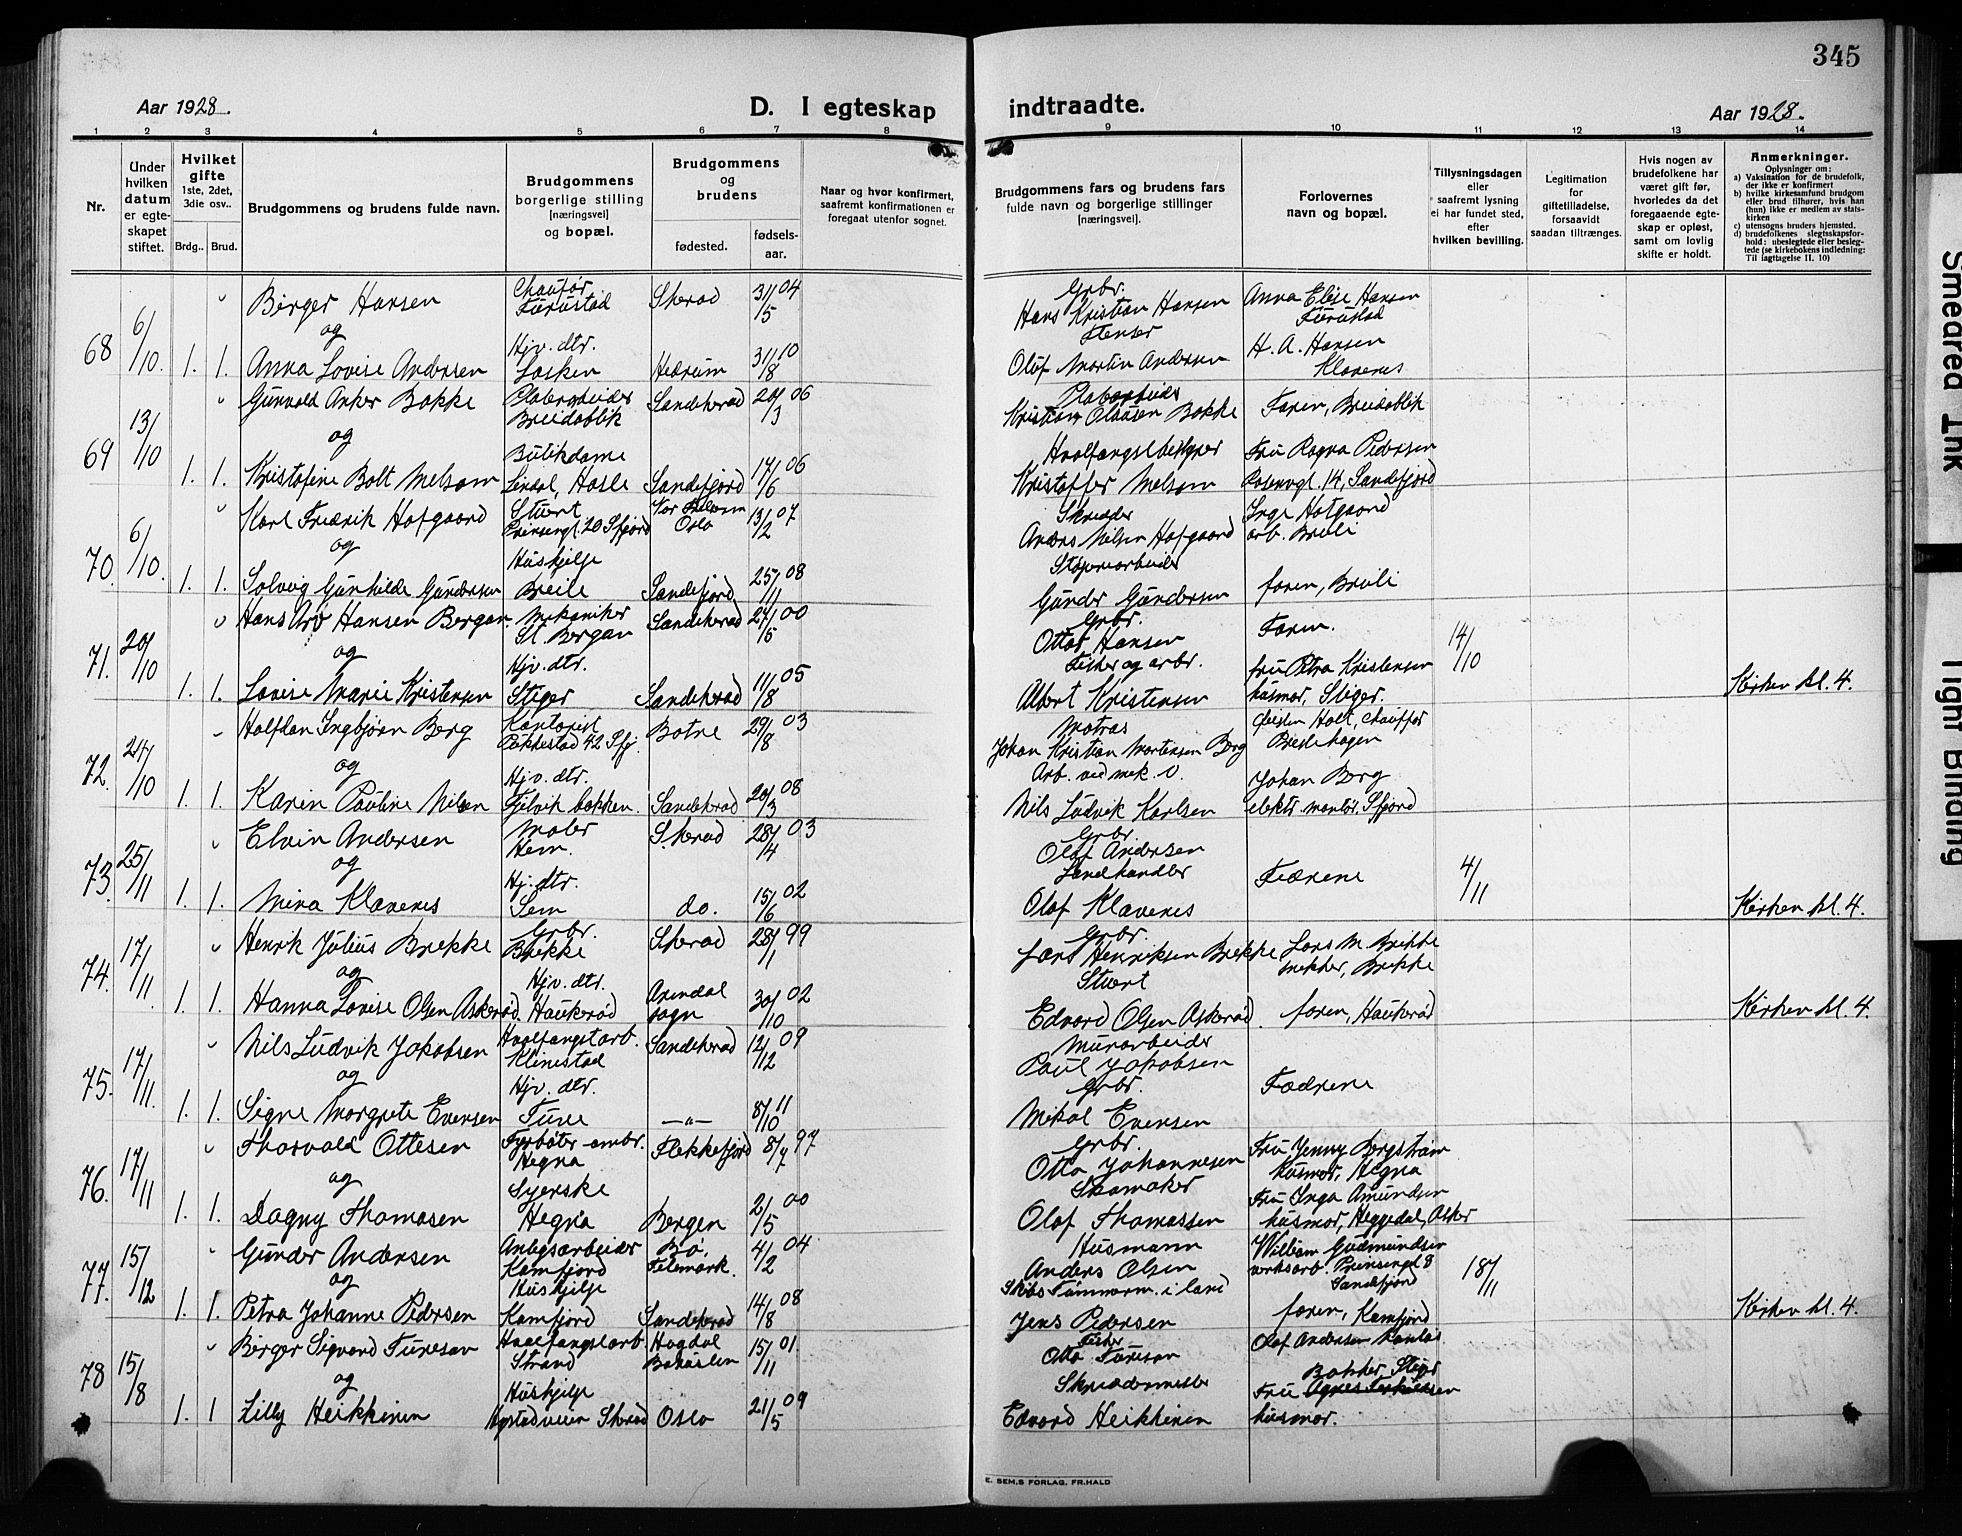 345
Aar 1928.
D. I egteskap indtraadte.
Aar 1928.
1 2 3 4 5 6 7 8 9 10 11 12 13 14
Nr.
Under hvilken datum er egteskapet stiftet.
Hvilket gifte 1ste, 2det, 3die osv..
Brdg.. Brud.
Brudgommens og brudens fulde navn.
Brudgommens borgerlige stilling [næringsvei] og bopæl.
Brudgommens og brudens
fødested. fødselsaar.
Naar og hvor konfirmert, saafremt konfirmationen er foregaat utenfor sognet.
Brudgommens fars og brudens fars fulde navn og borgerlige stillinger [næringsvei].
Forlovernes navn og bopæl.
Tillysningsdagen eller saafremt lysning ei har fundet sted, efter hvilken bevilling.
Legitimation for giftetilladelse, forsaavidt saadan tiltrænges.
Hvis nogen av brudefolkene har været gift før, hvorledes da det foregaaende egteskap er opløst, samt om lovlig skifte er holdt.
Anmerkninger.
Oplysninger om:
a) Vaksination for de brudefolk, der ikke er konfirmert
b) hvilke kirkesamfund brudgom eller brud tilhører, hvis han (hun) ikke er medlem av statskirken
c) utensogns bruders hjemsted.
d) brudefolkenes slegtsskapsforhold: ubeslegtede eller beslegtede (se kirkebokens indledning: Til iagttagelse II. 10)
68 6/10. 1. 1.
Birger Hansen
Chaufør Furustad Skerød 31/5 04
Grbr. Hans Kristian Hansen
Anna Elise Hansen Furustad
og
Anna Lovise Andersen
Hjv. dtr. Hedrum 31/8 10
Flenser Olof Martin Andersen
H. A. Hansen Klavenes
69 13/10 1. 1.
Gunvald Anker Bakke
Breidablik Sandeherad 20/3 06
Kristian Olausen Bakke
Faren, Breidablik
og
Kristofine Bolt Melsom
Butikdame Lindal, Hasle Sandefjord 17/6 06
Hvalfangstbestyrer Kristoffer Melsom
Fru Ragna Pedersen Rosenvgt. 14, Sandefjord
70. 6/10. 1. 1.
Karl Fredrik Hofgaard
Stuert Prinsengt. 20 Sfjord Oslo 13/2 07
Skredder Anders Nilsen Hofgaard
Inga Hofgaard arb. Breili
og
Solveig Gunhilde Gundersen
Hushjelp Breili Sandefjord 25/11 08
Støperiarbeider Gunder Gundersen
faren, Breili
71. 20/10 1. 1.
Hans Arv Hansen Bergan
Mekaniker St. Bergan Sandeherad 27/5 00
Grbr. Ottar Hansen
Faren.
14/10
og
Lovise Marie Kristensen
Hjv. dtr. Stiger Sandeherad 11/8 05
Fisker og arbr. Albert Kristensen
fru Petra Kristensen husmor, Stiger.
Kirken kl. 4.
72. 27/10 1. 1.
Halfdan Ingbjørn Berg
Kontorist Pukkestad 42 Sfj. Botne 29/8 03
Matros Johan Kristian Mortensen Berg
Holt, chauffør
og
Karin Pauline Nilsen
Hjv. dtr. Fjelvik bakken. Sandeherad 20/3 08
Arb. ved mek. V. Nils Ludvik Karlsen
Johan Berg elektr. montør. Sfjord
73. 25/11 1. 1.
Elvin Andersen
Maler Hem. Skerød 28/4 03
Grbr. Olaf Andersen
Fædrene
4/11
og
Mina Klavenes
Hj. dtr. Sem do. 15/6 02
Landhandler Olof Klavenes
Kirken kl. 4.
74. 17/11. 1. 1.
Henrik Julius Brekke
Grbr. Brekke Skerød 28/1 99
Grbr. Lars Henriksen Brekke
Lars M. Brekke snekker, Brekke
og
Hanna Lovise Olsen Askerød.
Hjv. dtr. Haukerød Arendal sogn 30/10 02
Stuert Edvard Olsen Askerød.
faren, Haukerød
Kirken kl. 4.
75. 17/11. 1. 1.
Nils Ludvik Jakobsen
Hvalfangstarb. Klinestad Sandeherad 12/12 09
Murarbeider Paul Jakobsen
Fædrene
og
Signe Margrete Evensen
Hjv. dtr. Furre — „ — 8/10 11
Grbr. Mikal Evensen
76. 17/11 1. 1.
Thorvald Ottesen
Fyrbøter ombr. Hegna Flekkefjord 8/7 97
Grbr. Otto Johannesen
Fru Jenny Bergstrøm husmor, Hegna
og
Dagny Thomasen
Syerske Hegna Bergen 2/5 00
Skomaker Olaf Thomassen
Fru Inga Amundsen husmor, Heggedal, Asker
77. 15/12 1. 1.
Gunder Andersen
Anlegsarbeider Kamfjord Bø, Telemark. 4/2 04
Husmann Anders Olsen
William Gudmundsen verksarb. Prinsengt 8 Sandefjord
18/11
og
Petra Johanne Pedersen
Hushjelp Kamfjord Sandeherad 14/8 08
Skibs Tømmerm. i land Jens Pedersen
faren, Kamfjord
Kirken kl. 4.
78 15/8 1. 1
Birger Sigvard Furesan
Hvalfangstarb. Strand Hogdal Bohuslen 15/11 01.
Fisker Otto Furesan
Olaf Andersen
og
Lilly Heikkinen
Hushjelp Oslo 21/5 09
Skreddermester Edvard Heikkinen
Fru Agnes husmor.
E. SEM.S FORLAG, FR.HALD
Smeared Ink
Tight Binding